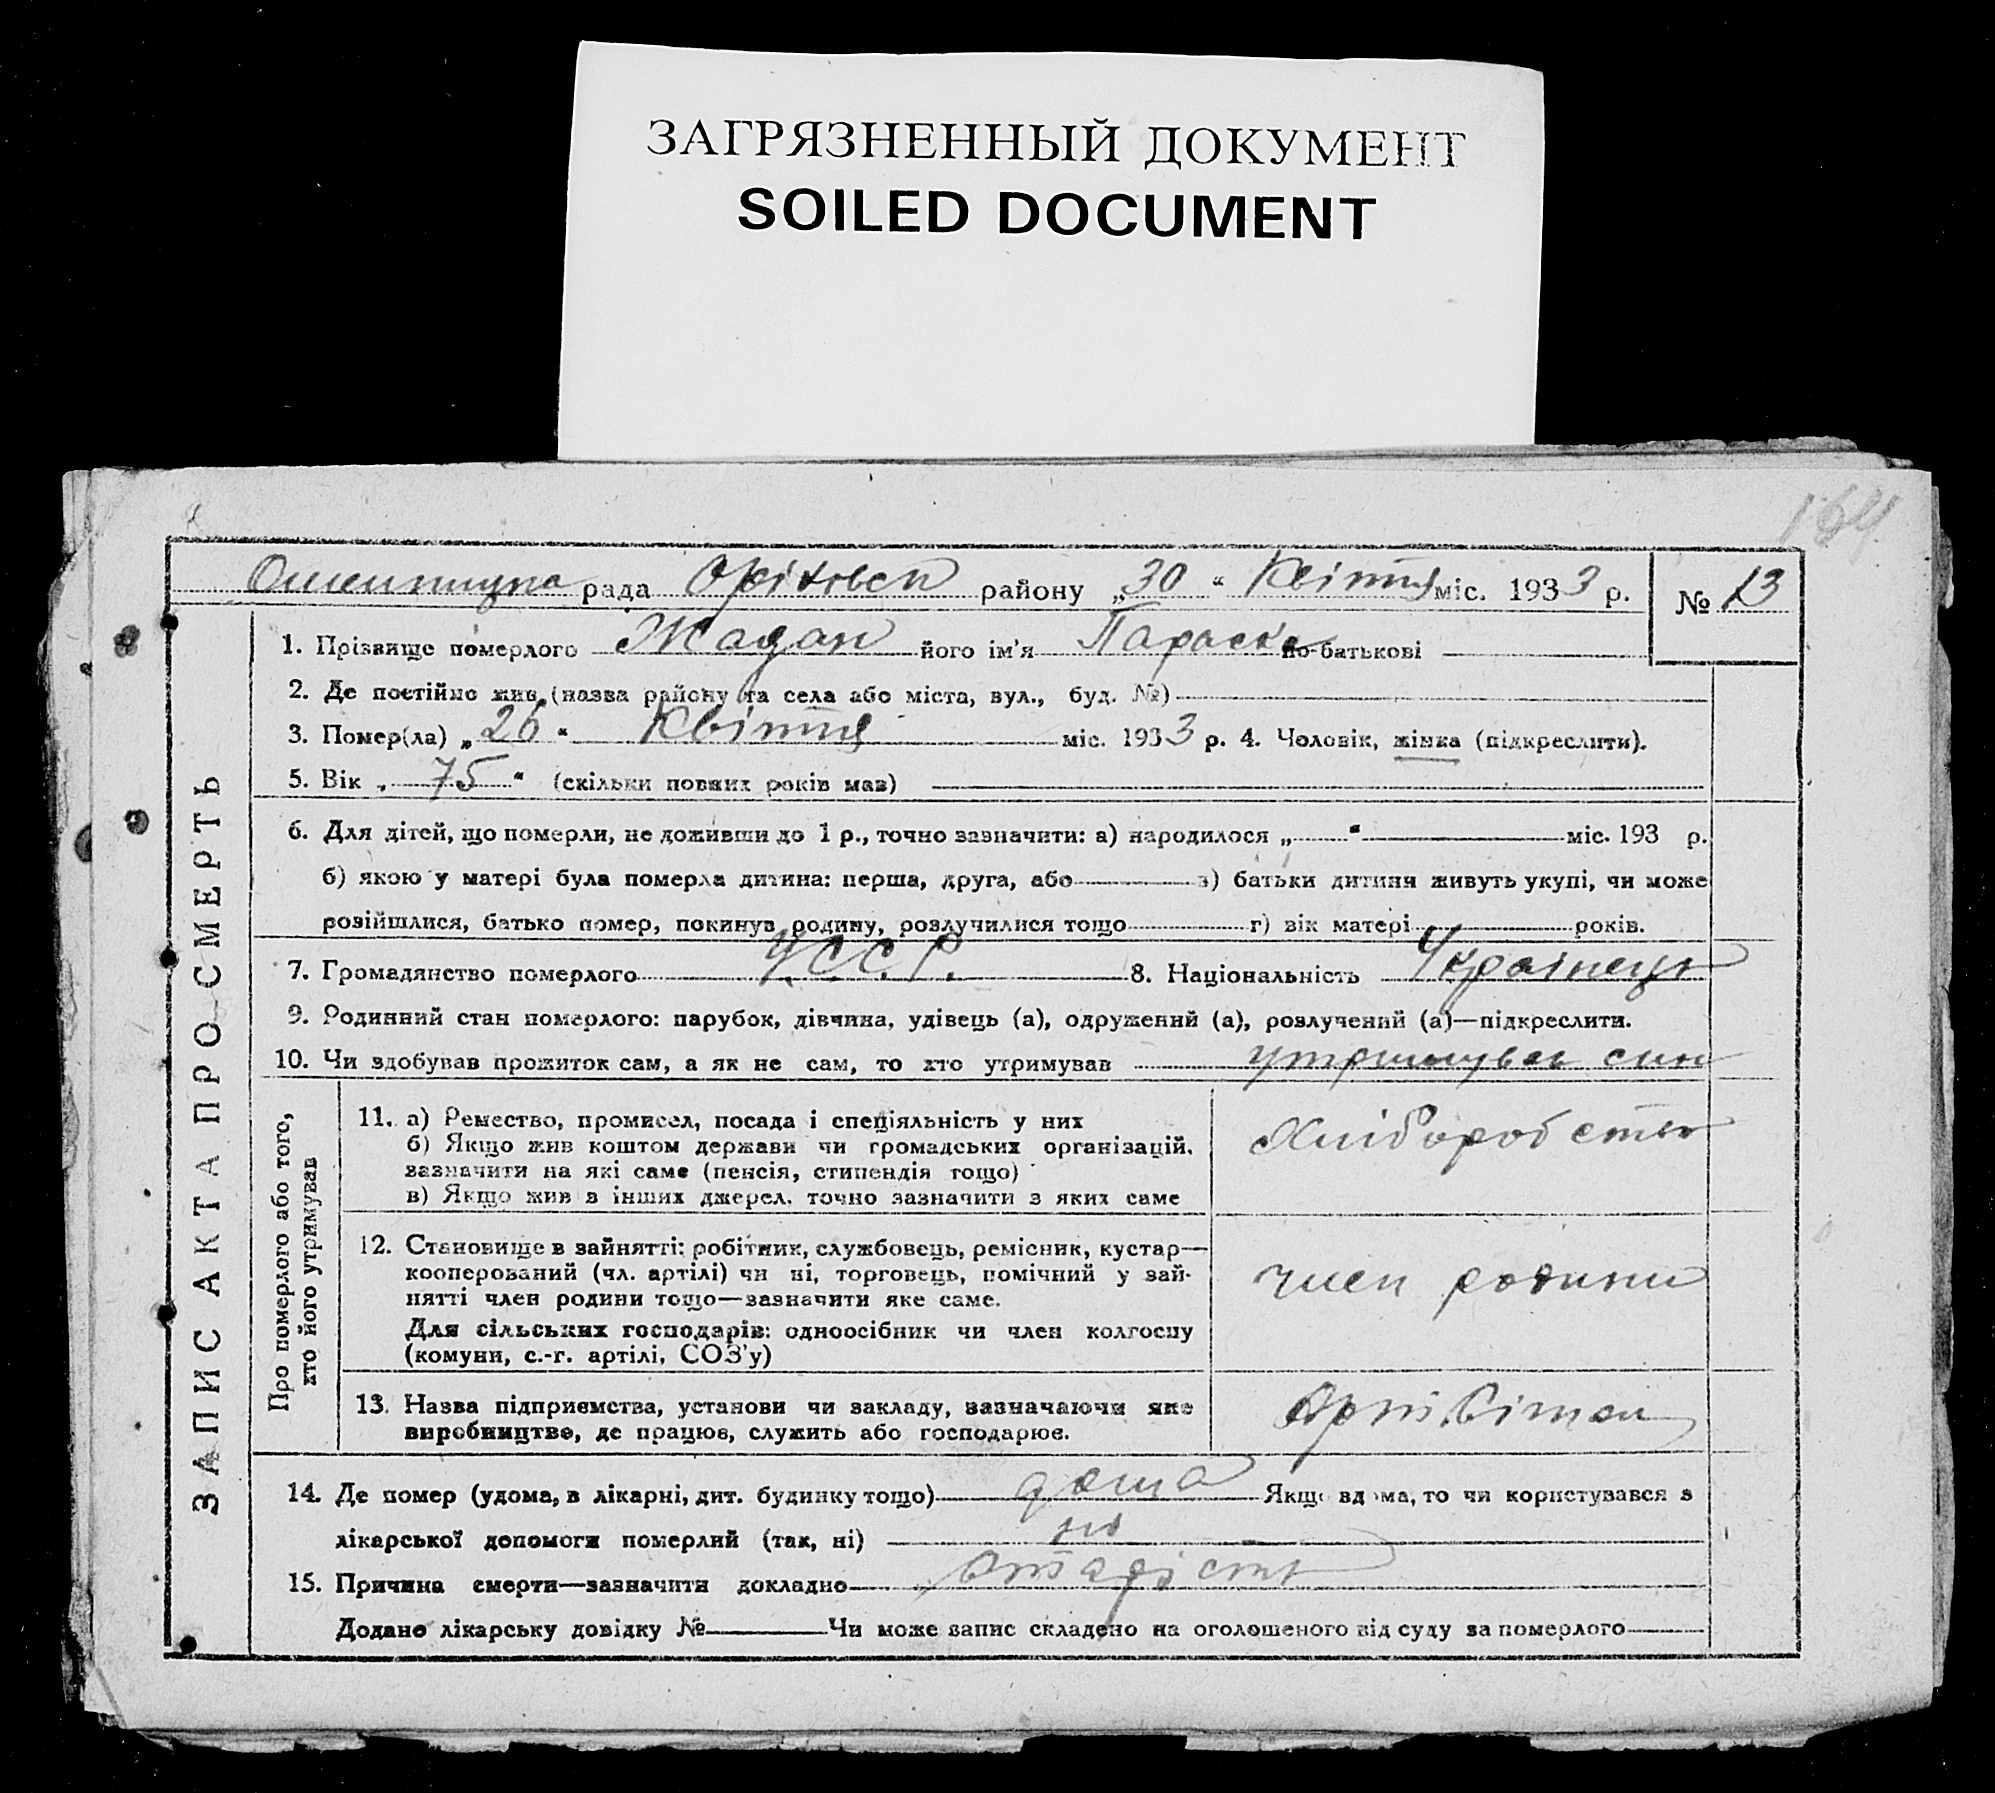 ЗАГРЯЗНЕННЫЙ ДОКУМЕНТ
SOILED DOCUMENT
164
рада район­у „30“ Квітня міс. 1933 р. № 13
ЗАПИС АКТА ПРО СМЕРТЬ
1. Прізвище померлого Жадан його ім'я Параска по-батькові
2. Де постійно жив, (назва району та села або міста, вул., буд. №)
3. Помер(ла) „26“ Квітня міс. 1933 р. 4. Чоловік, жінка (підкреслити).
5. Вік „75“ (скільки повних років мав)
6. Для дітей, що померли, не доживши до 1 р., точно зазначити: а) народилося „ “ міс. 193 р.
б) якою у матері була померла дитина: перша, друга, або в) батьки дитини живуть укупі, чи може
розійшлися, батько помер, покинув родину, розлучилися тощо г) вік матері років.
7. Громадянство померлого УССР. 8. Національність Українець
9. Родинний стан померлого: парубок, дівчина, удівець (а), одружений (а), розлучений (а)—підкреслити.
10. Чи здобував прожиток сам, а як не сам, то хто утримував утримував син
Про померлого або того,
хто його утримував
11. а) Ремество, промисел, посада і спеціяльність у них
б) Якщо жив коштом держави чи громадських організацій,
зазначити на які саме (пенсія, стипендія тощо)
в) Якщо жив з інших джерел, точно зазначити з яких саме
Хліборобство
12. Становище в зайнятті: робітник, службовець, ремісник, кустар—
кооперований (чл. артілі) чи ні, торговець, помічний у зай-
нятті член родини тощо—зазначити яке саме.
Для сільських господарів: одноосібник чи член колгоспу
(комуни, с.-г. артілі, СОЗ'у)
член родини
13. Назва підприємства, установи чи закладу, зазначаючи яке
виробництво, де працює, служить або господарює.
14. Де помер (удома, в лікарні, дит. будинку тощо) дома Якщо вдома, то чи користувався з
лікарської допомоги померлий (так, ні) ні
15. Причина смерти—зазначити докладно старість
Додано лікарську довідку № Чи може запис складено на оголошеного від суду за померлого